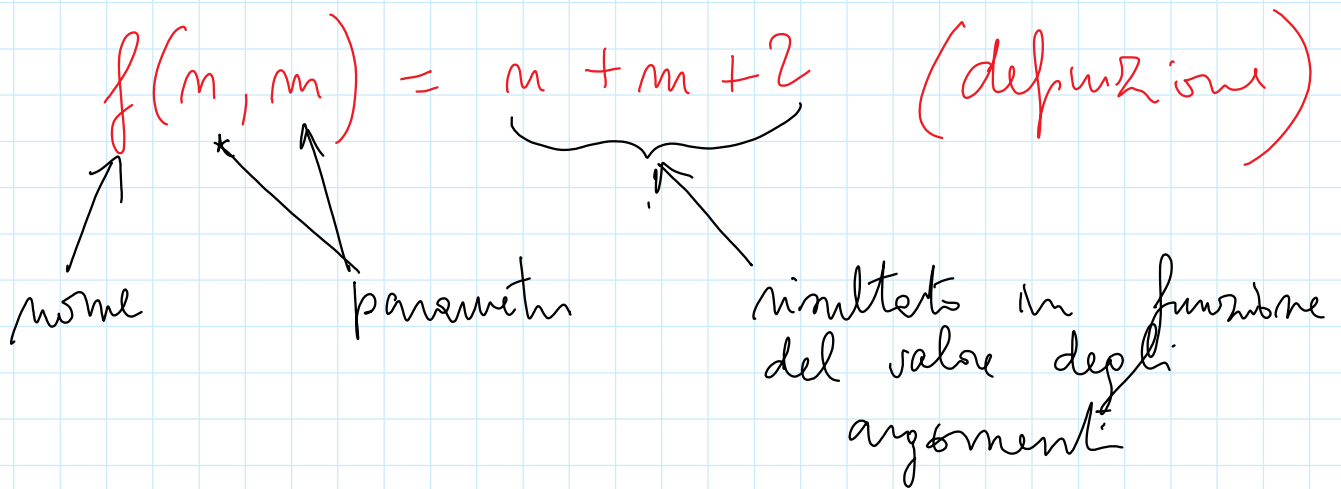 f(n, m) = n + m + 2 (definizione)
nome parametri risultato in funzione
del valore degli
argomenti